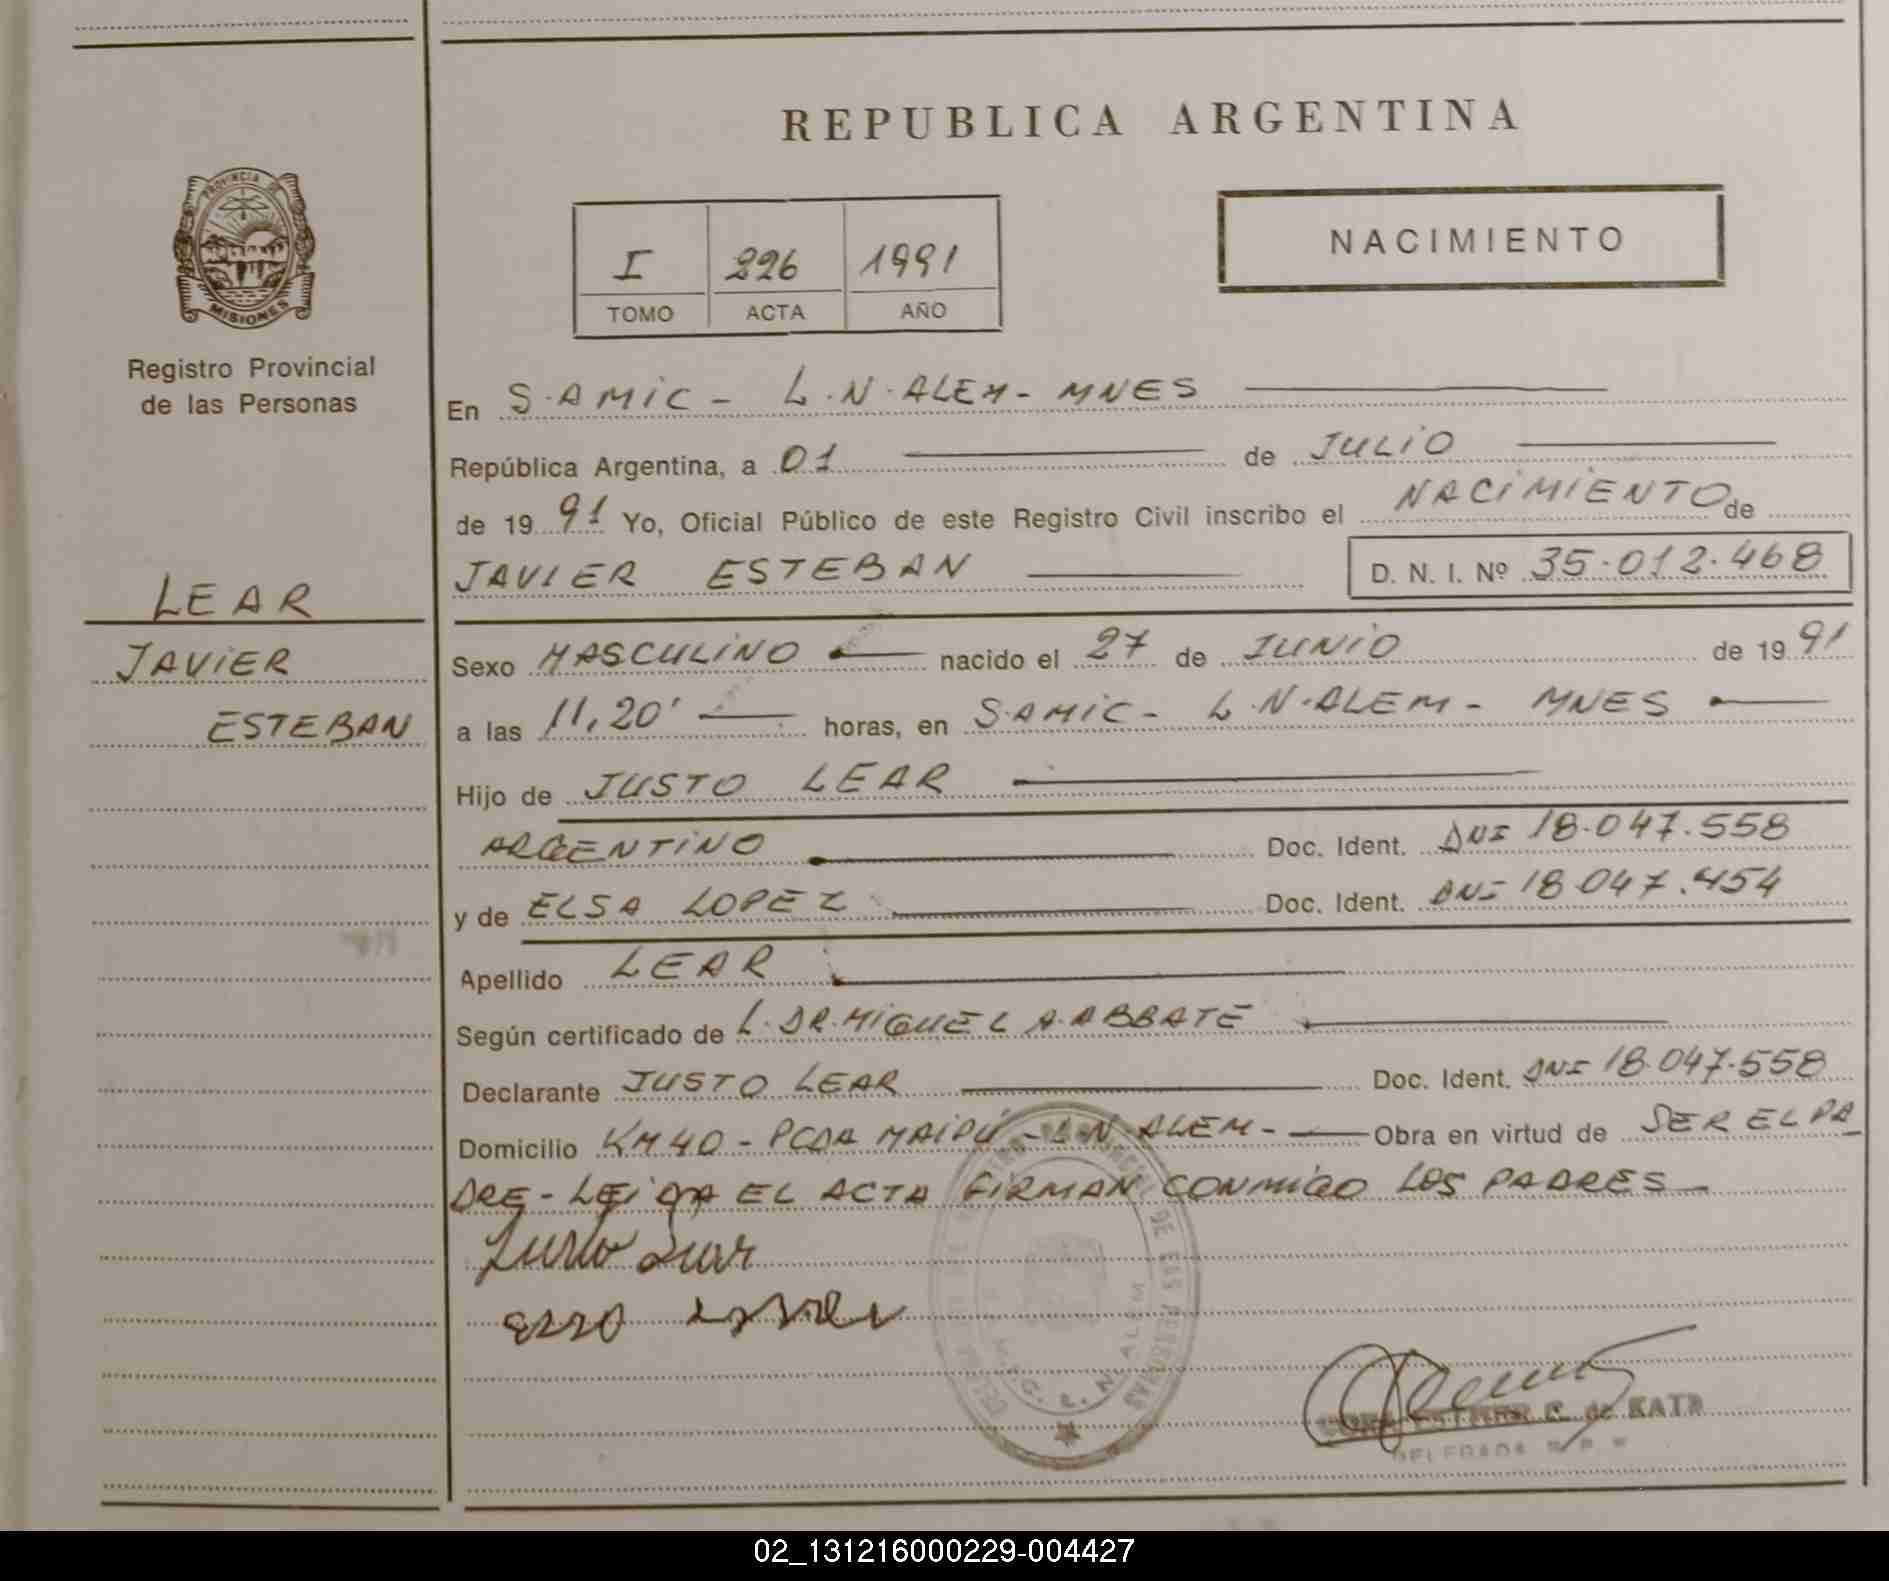 REPUBLICA ARGENTINA
PROVINCIA DE
MISIONES
Registro Provincial
de las Personas
I 226 1991
TOMO ACTA AÑO
NACIMIENTO
LEAR
JAVIER
ESTEBAN
En S.AMIC - L.N.ALEM - MNES
República Argentina, a 01 de JULIO
de 19 91 Yo, Oficial Público de este Registro Civil inscribo el NACIMIENTO de
JAVIER ESTEBAN D. N. I. Nº 35.012.468
Sexo MASCULINO nacido el 27 de JUNIO de 19 91
a las 11,20' horas, en S.AMIC - L.N.ALEM - MNES
Hijo de JUSTO LEAR
ARGENTINO Doc. Ident. DNI 18.047.558
y de ELSA LOPEZ Doc. Ident. DNI 18.047.454
Apellido LEAR
Según certificado de L.DR.MIGUEL A.ABBATE
Declarante JUSTO LEAR Doc. Ident. DNI 18.047.558
Domicilio KM40 - PCDA MAIPÚ - L N ALEM - Obra en virtud de SER EL PA
DRE - LEIDA EL ACTA FIRMAN CONMIGO LOS PADRES
Justo Lear
DE LAS PERSONAS
N. ALEM
C. de KATZ
DELEGADA
02_131216000229-004427